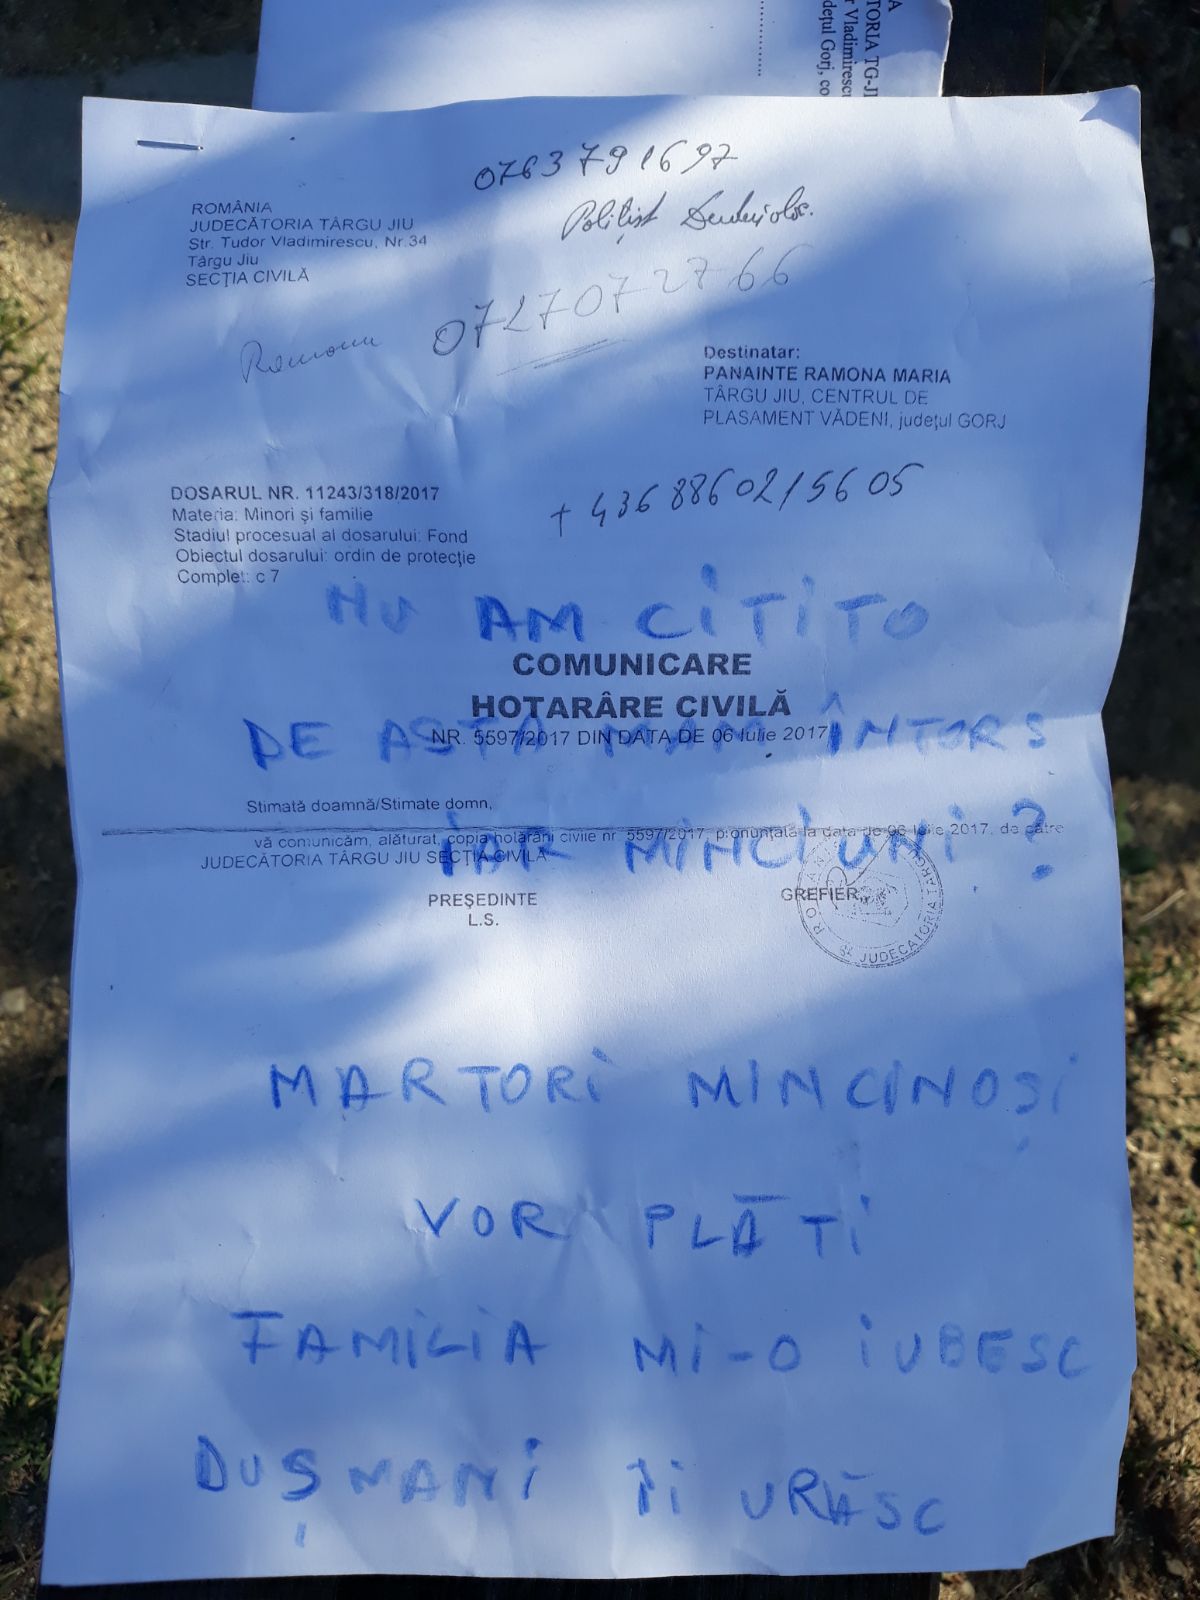 TORIA TG-JI
r Vladimirescu
dețul Gorj, co
0763791697
Polițist
ROMÂNIA
JUDECĂTORIA TÂRGU JIU
Str. Tudor Vladimirescu, Nr.34
Târgu Jiu
SECŢIA CIVILĂ
0727072766
Ramona
Destinatar:
PANAINTE RAMONA MARIA
TÂRGU JIU, CENTRUL DE
PLASAMENT VĂDENI, judeţul GORJ
DOSARUL NR. 11243/318/2017
Materia: Minori şi familie
Stadiul procesual al dosarului: Fond
Obiectul dosarului: ordin de protecţie
Complet: c 7
+4368860215605
NU AM CITITO
COMUNICARE
HOTARÂRE CIVILĂ
DE ASTA MAM ÎNTORS
NR. 5597/2017 DIN DATA DE 06 Iulie 2017
Stimată doamnă/Stimate domn,
vă comunicăm, alăturat, copia hotărârii civile nr. 5597/2017, pronunţată la data de 06 Iulie 2017, de către
JUDECĂTORIA TÂRGU JIU SECŢIA CIVILĂ
IAR MINCIUNI?
PREŞEDINTE
L.S.
GREFIER,
ROMÂNIA
JUDECĂTORIA TÂRGU
MARTORI MINCINOȘI
VOR PLĂTI
FAMILIA MI-O IUBESC
DUȘMANI ÎI URĂSC